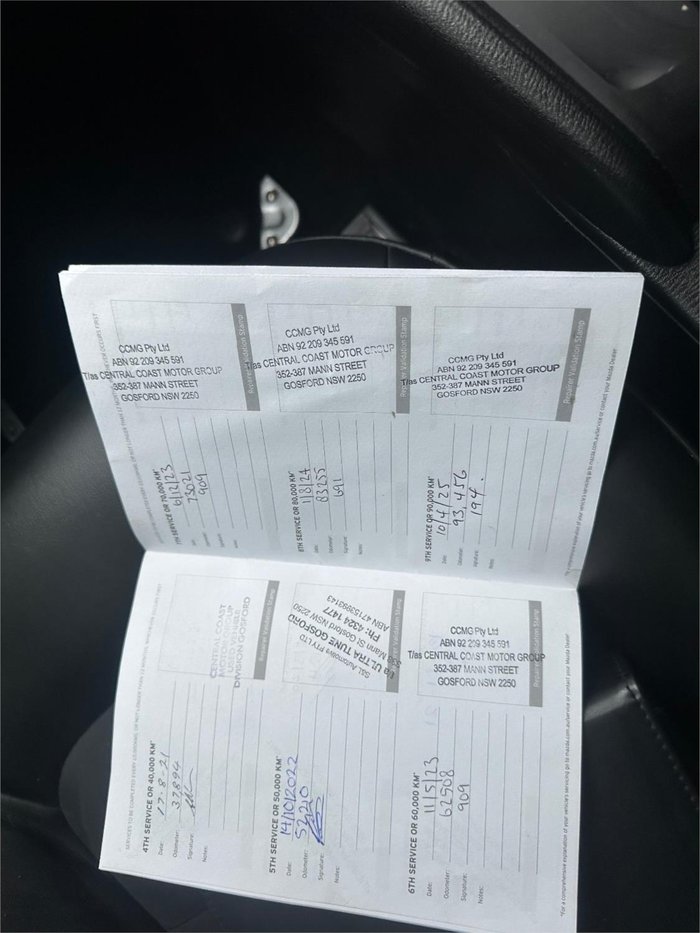 SERVICES TO BE COMPLETED EVERY 10,000KM, OR NOT LONGER THAN 12 MONTHS, WHICHEVER OCCURS FIRST
4TH SERVICE OR 40,000 KM*
Date: 17-8-21
Odometer: 37894
Signature:
Notes:
CENTRAL COAST
MOTOR GROUP
USED VEHICLE
DIVISION GOSFORD
Repairer Validation Stamp
5TH SERVICE OR 50,000 KM*
Date: 14/10/2022
Odometer: 52210
Signature:
Notes:
S&L Automotive PTY LTD
T/a ULTRA TUNE GOSFORD
Mann St Gosford NSW 2250
Ph: 4324 1477
Repairer Validation Stamp
6TH SERVICE OR 60,000 KM*
Date: 11/5/23
Odometer: 62508
Signature: 909
Notes:
CCMG Pty Ltd
ABN 92 209 345 591
T/as CENTRAL COAST MOTOR GROUP
352-387 MANN STREET
GOSFORD NSW 2250
Repairer Validation Stamp
*For a comprehensive explanation of your vehicle's servicing go to mazda.com.au/service or contact your Mazda Dealer
7TH SERVICE OR 70,000 KM*
6/12/23
73021
909
CCMG Pty Ltd
ABN 92 209 345 591
T/as CENTRAL COAST MOTOR GROUP
352-387 MANN STREET
GOSFORD NSW 2250
Repairer Validation Stamp
8TH SERVICE OR 80,000 KM*
Date: 1/8/24
Odometer: 83255
Signature: 691
Notes:
CCMG Pty Ltd
ABN 92 209 345 591
T/as CENTRAL COAST MOTOR GROUP
352-387 MANN STREET
GOSFORD NSW 2250
Repairer Validation Stamp
9TH SERVICE OR 90,000 KM*
Date: 10/4/25
Odometer: 93,456
Signature: 194.
Notes:
CCMG Pty Ltd
ABN 92 209 345 591
T/as CENTRAL COAST MOTOR GROUP
352-387 MANN STREET
GOSFORD NSW 2250
Repairer Validation Stamp
*For a comprehensive explanation of your vehicle's servicing go to mazda.com.au/service or contact your Mazda Dealer